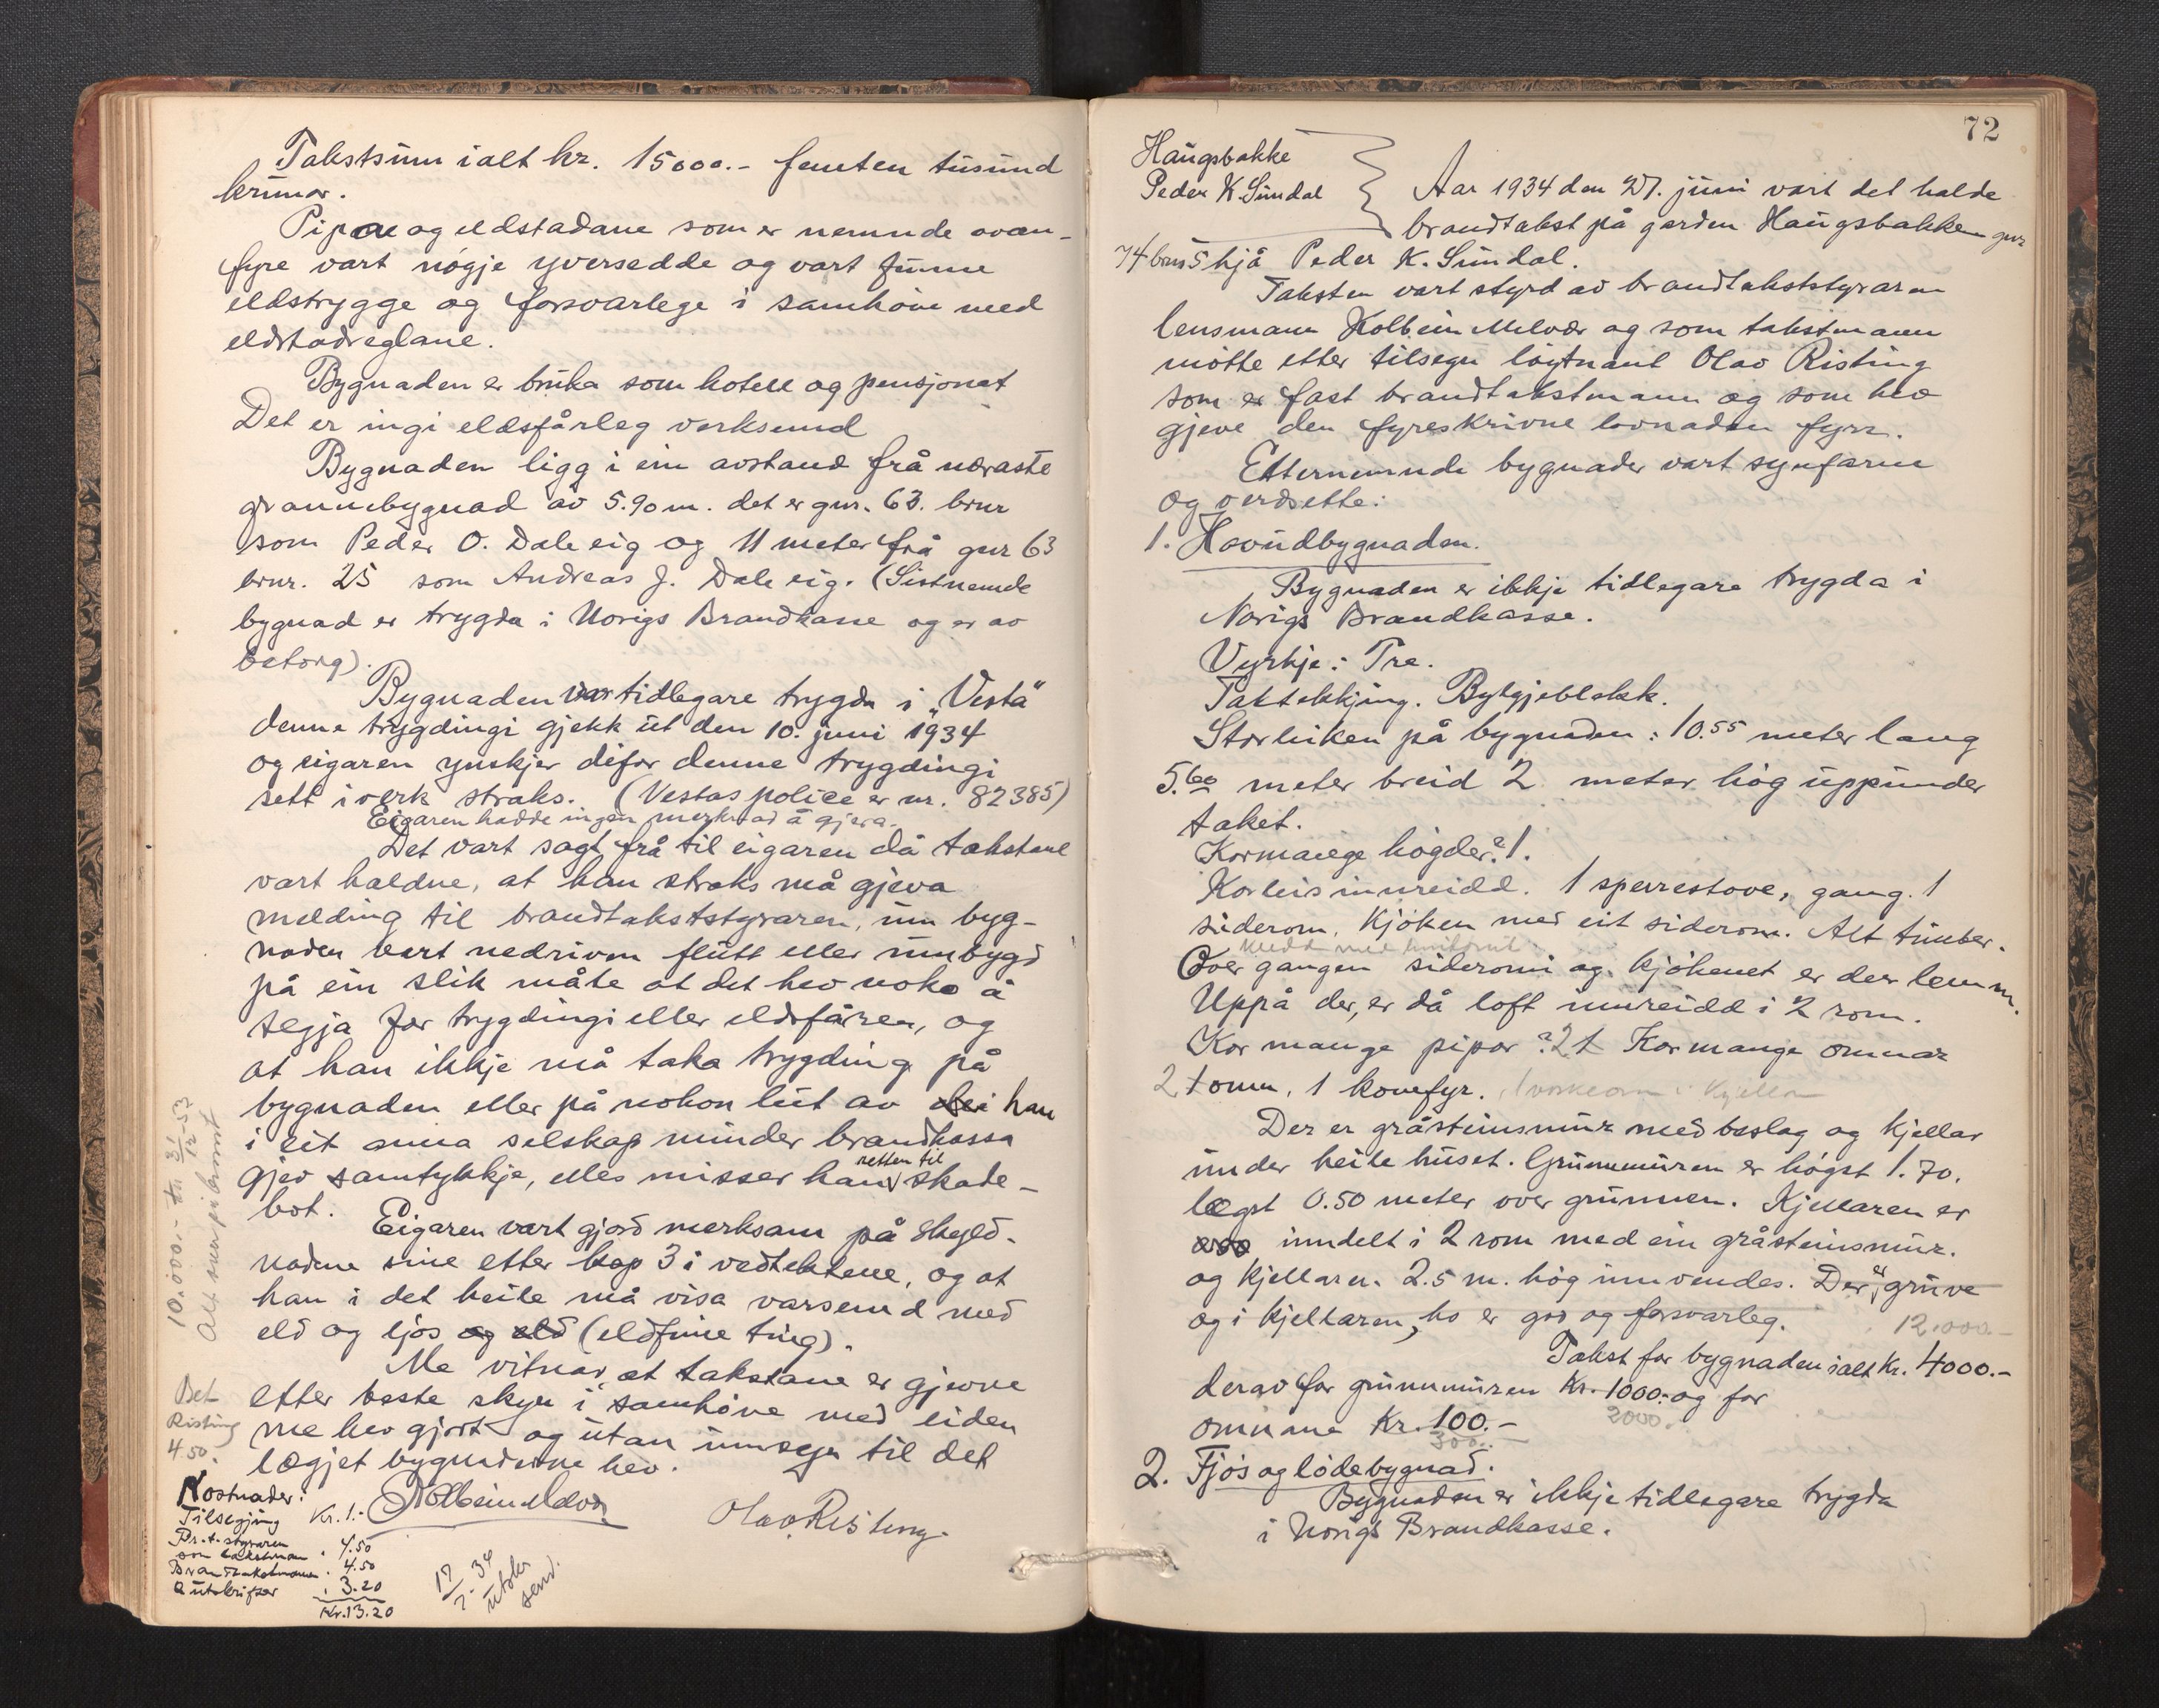 Takstsum ialt kr. 15000.- femten tusund
krunor.
Pipone og eldstadane som er nemnde ovan-
fyre vart nøgje yversedde og vart funne
eldstrygge og forsvarlege i samhøve med
eldstadreglane.
Bygnaden er bruka som hotell og pensjonat
Det er ingi eldsfårleg verksemd
Bygnaden ligg i ein avstand frå næraste
grannebygnad av 5.90 m. det er gnr. 63. brnr
som Peder O. Dale eig og 11 meter frå gnr 63
brnr. 25 som Andreas J. Dale eig. (Sistnemde
bygnad er trygda i Norigs Brandkasse og er av
betong).
Bygnaden var tidlegare trygda i „Vesta"
denne trygdingi gjekk ut den 10. juni 1934
og eigaren ynskjer difor denne trygdingi
sett i verk straks. (Vestas police er nr. 82385)
Eigaren hadde ingen merknad å gjera.
Det vart sagt frå til eigaren då takstane
vart haldne, at han straks må gjeva
melding til brandtakststyraren, um byg-
naden vert nedriven flutt eller umbygd
på ein slik måte at det hev noko å
segja for trygdingi eller eldsfåren, og
at han ikkje må taka trygding på
bygnaden eller på nokon lut av han
i eit anna selskap minder brandkassa
gjev samtykkje, elles misser han retten til skade-
bot.
Eigaren vart gjord merksam på skyld-
nadene sine etter kap 3 i vedtektene, og at
han i det heile må visa varsemd med
eld og ljos og eld (eldfime ting).
Me vitnar at takstane er gjevne
etter beste skyn i samhøve med eiden
me hev gjort og utan umsyn til det
lægjet bygnaderne hev.
Kolbein Melvær
Olav Risting.
10.000.- fr. 31/12-53
Alt
Bet
Risting
4.50.
Kostnader:
Tilsegjing Kr. 1.-
Br.t. styraren
som takstmann " 4.50
Brandtakstmann " 4.50
2 utskrifter " 3.20
Kr. 13.20
17/7-34
utskr
send.
72
Haugsbakke
Peder K. Sundal
Aar 1934 den 27. juni vart det halde
brandtakst på garden Haugsbakken gnr
74 brnr 5 hjå Peder K. Sundal.
Taksten vart styrd av brandtakststyraren
lensmann Kolbein Melvær og som takstmann
møtte etter tilsegn løytnant Olav Risting
som er fast brandtakstmann og som hev
gjeve den fyreskrivne lovnaden fyrr.
Etternemnde bygnader vart synfarne
og verdsette:
1. Hovudbygnaden.
Bygnaden er ikkje tidlegare trygda i
Norigs Brandkasse.
Vyrkje: Tre.
Taktekkjing. Bylgjeblekk.
Storleiken på bygnaden: 10.55 meter lang
5.60 meter breid 2 meter høg uppunder
taket.
Kormange høgder? 1.
Korleis innreidd. 1 sperrestove, gang. 1
siderom. Kjøken med eit siderom. Alt timber.
Over gangen sideromi og kjøkenet er der lemm.
Uppå der, er då loft innreidd i 2 rom.
Kor mange pipor? 2 1 Kor mange omnar
2 1 omn, 1 komfyr. 1 vaskeomn i kjellar
Der er gråsteinsmur med beslag og kjellar
under heile huset. Grunnmuren er høgst 1.70.
lægst 0.50 meter over grunnen. Kjellaren er
inndelt i 2 rom med ein gråsteinsmur.
og kjellaren. 2.5 m. høg innvendes. Der er gruve
og i kjellaren, ho er god og forsvarleg.
12.000.-
Takst for bygnaden ialt Kr. 4000.-
derav for grunnmuren Kr. 1000.- og for
2000.-
omnane Kr. 100.-
300.-
2. Fjøs og lødebygnad.
Bygnaden er ikkje tidlegare trygda
i Norigs Brandkasse.